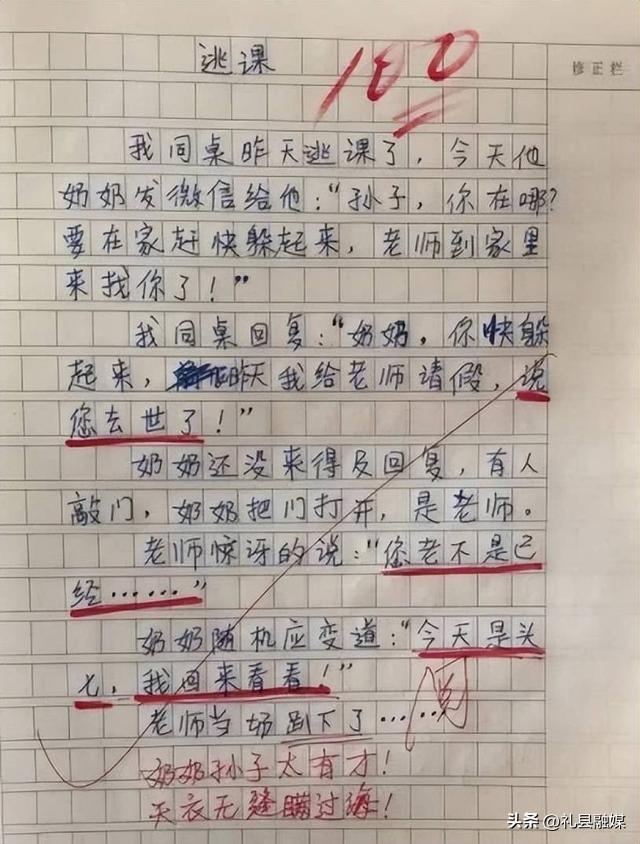 逃课
100
修正栏
我同桌昨天逃课了，今天他
奶奶发微信给他：“孙子，你在哪？
要在家赶快躲起来，老师到家里
来找你了！”
我同桌回复：“奶奶，你快躲
起来，昨天我给老师请假，说
您去世了！”
奶奶还没来得及回复，有人
敲门，奶奶把门打开，是老师。
老师惊讶的说：“您老不是已
经……”
奶奶随机应变道：“今天是头
七，我回来看看！”
老师当场趴下了……
阅
奶奶孙子太有才！
天衣无缝瞒过海！
头条 @礼县融媒